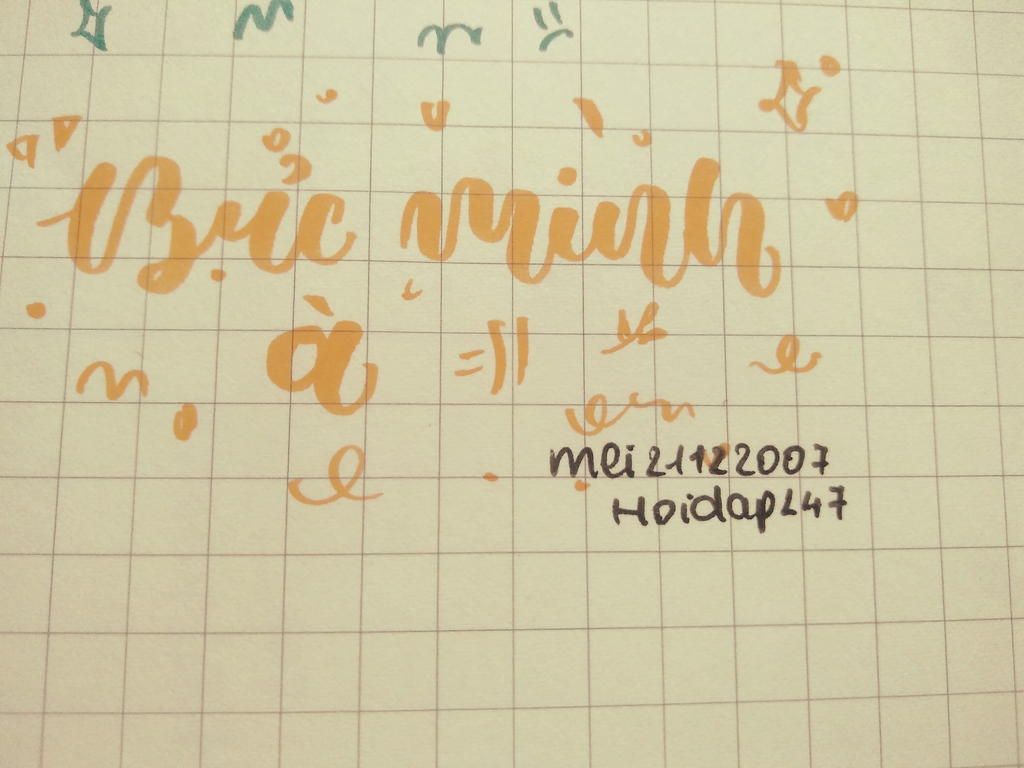 Bực mình
à =))
mei21122007
Hoidap247